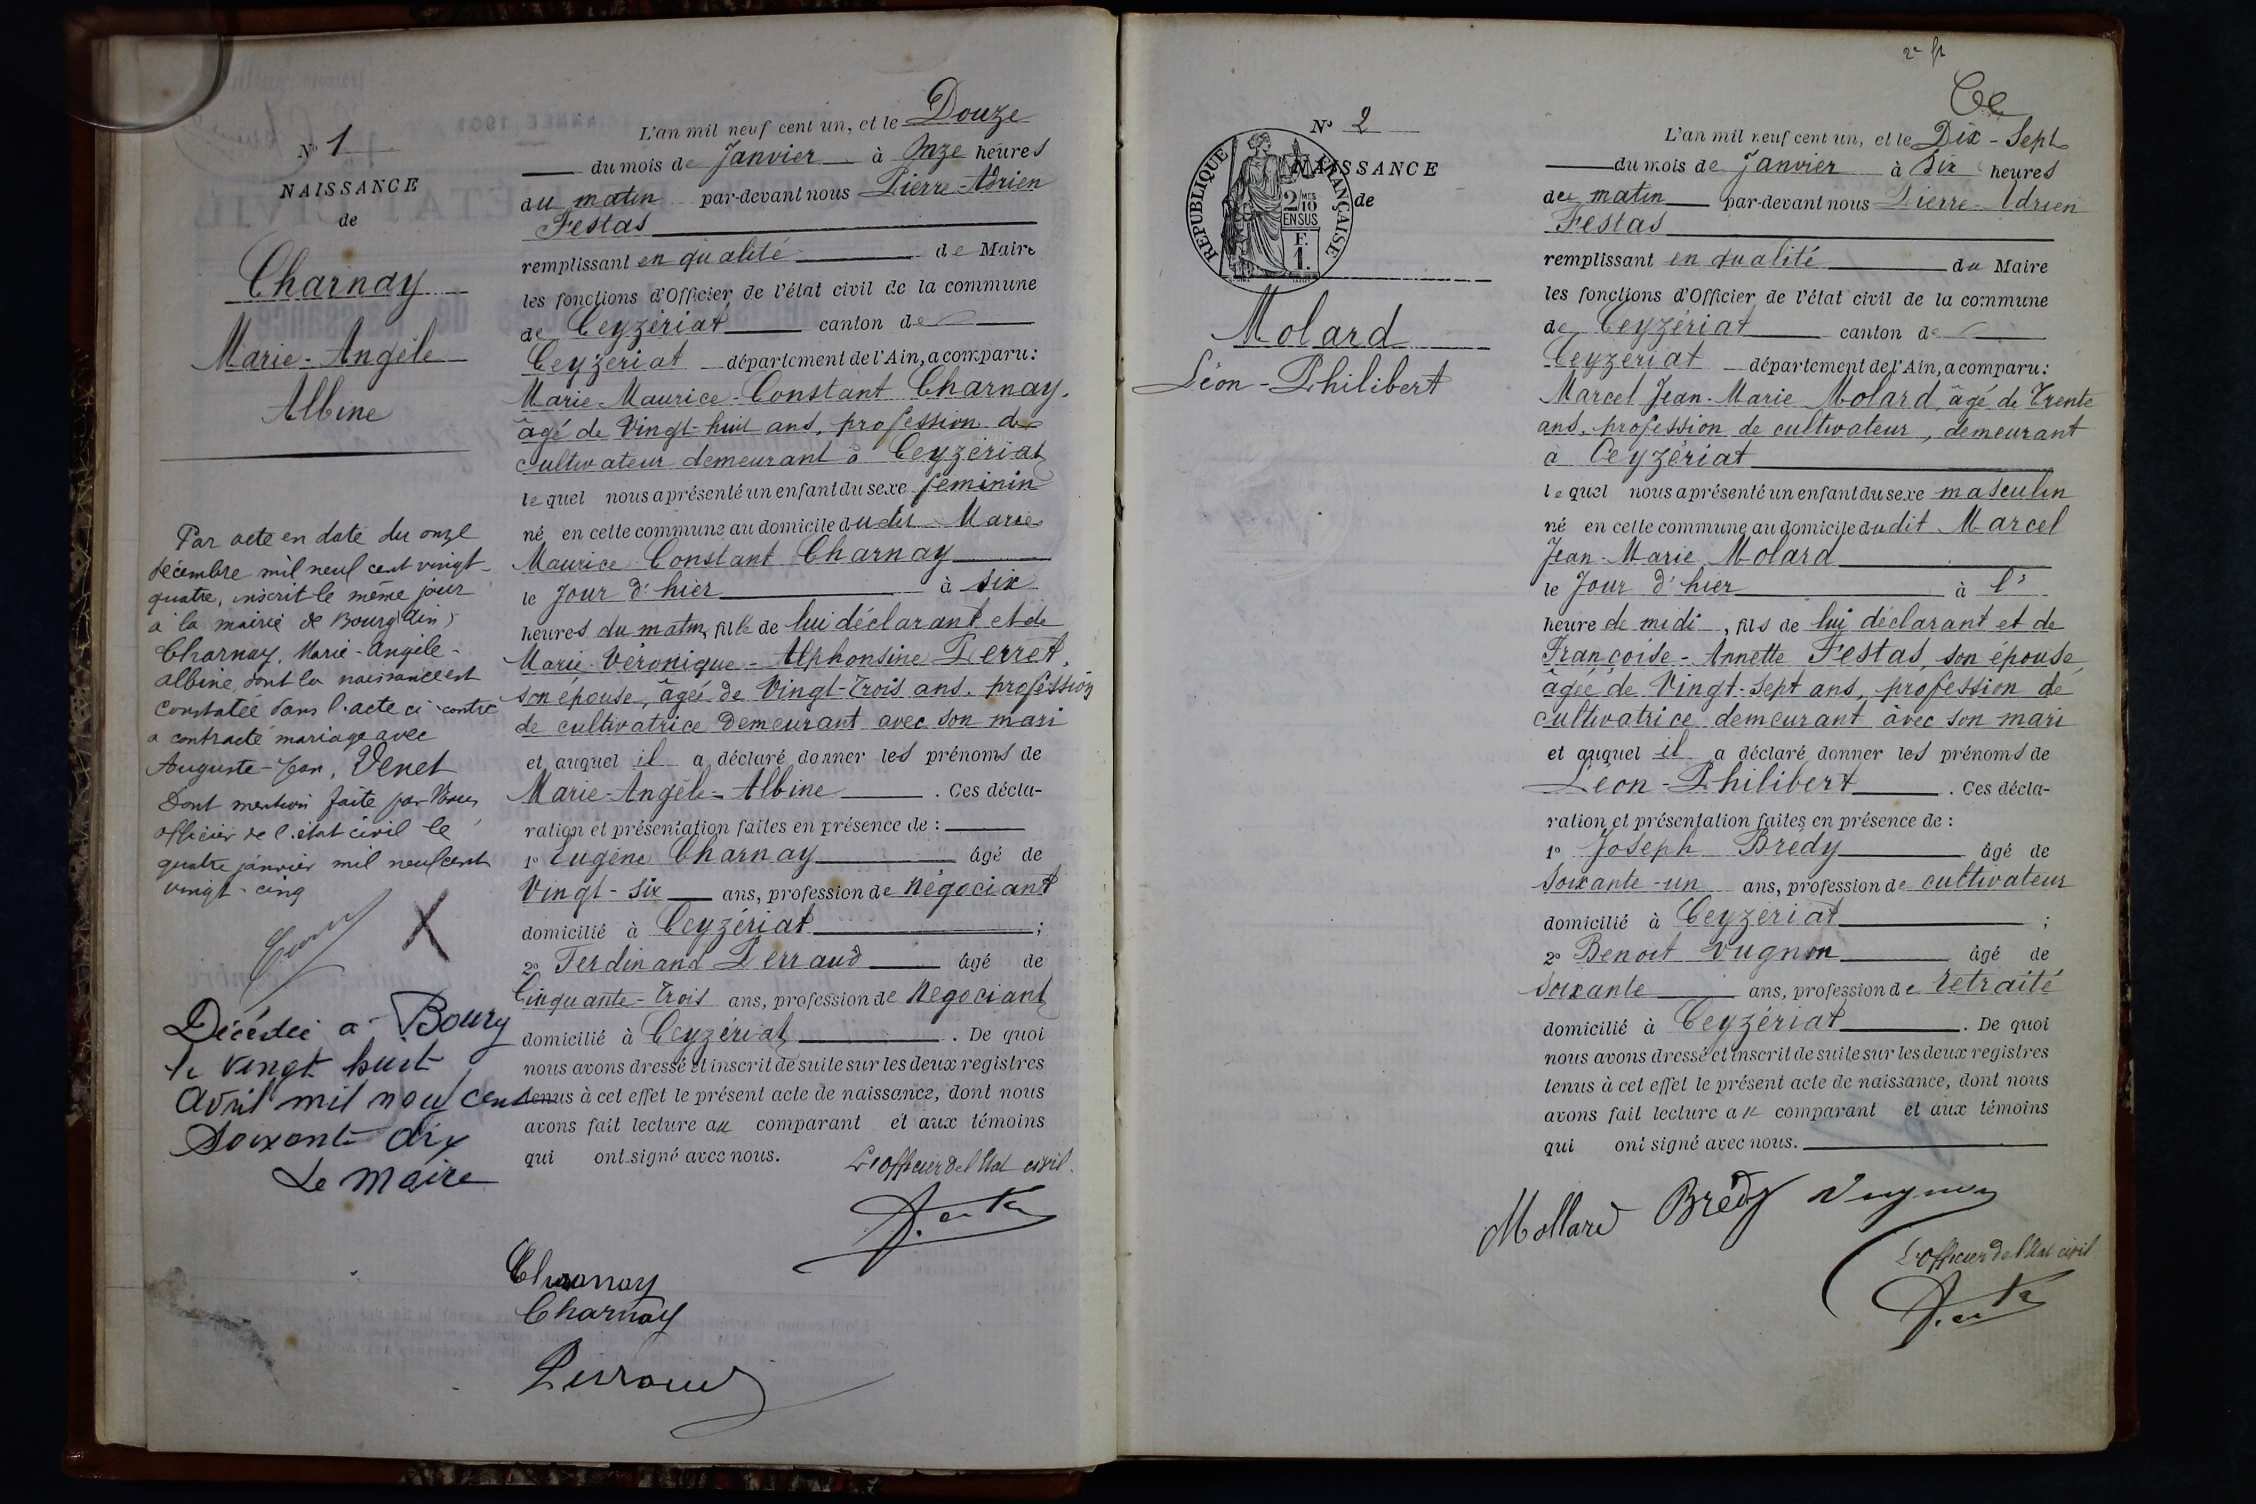 N° 1
NAISSANCE
de
Charnay
Marie-Angèle
Albine
Par acte en date du onze
décembre mil neuf cent vingt-
quatre, inscrit le même jour
à la mairie de Bourg (Ain)
Charnay, Marie-Angèle-
albine, dont la naissance est
constatée dans l'acte ci-contre
a contracté mariage avec
Auguste-Jean, Venet
Dont mention faite par Nous
officier de l'état civil le
quatre janvier mil neuf cent
vingt-cinq
X
Décédée à Bourg
le vingt huit
avril mil neuf cent
soixante dix
Le Maire
L'an mil neuf cent un, et le Douze
du mois de Janvier à Onze heures
du matin par-devant nous Pierre-Adrien
Festas
remplissant en qualité de Maire
les fonctions d'Officier de l'état civil de la commune
de Ceyzériat canton de
Ceyzériat département de l'Ain, a comparu:
Marie-Maurice-Constant Charnay,
âgé de Vingt-huit ans, profession de
cultivateur demeurant à Ceyzériat
lequel nous a présenté un enfant du sexe féminin
né en cette commune au domicile dudit Marie
Maurice Constant Charnay
le Jour d'hier à six
heures du matin, fille de lui déclarant et de
Marie-Véronique-Alphonsine Perret,
son épouse, âgée de Vingt-Trois ans, profession
de cultivatrice demeurant avec son mari
et auquel il a déclaré donner les prénoms de
Marie-Angèle-Albine. Ces décla-
ration et présentation faites en présence de :
1° Eugène Charnay âgé de
Vingt-six ans, profession de Négociant
domicilié à Ceyzériat ;
2° Ferdinand Perraud âgé de
Cinquante-Trois ans, profession de Négociant
domicilié à Ceyzériat. De quoi
nous avons dressé et inscrit de suite sur les deux registres
tenus à cet effet le présent acte de naissance, dont nous
avons fait lecture au comparant et aux témoins
qui ont signé avec nous.
L'officier de l'Etat civil.
Charnay
Charnay
Perraud
2e f
N° 2
NAISSANCE
de
RÉPUBLIQUE FRANÇAISE
2/10 MES
EN SUS
F.
1.
Molard
Léon-Philibert
L'an mil neuf cent un, et le Dix-Sept
du mois de Janvier à Six heures
du matin par-devant nous Pierre-Adrien
Festas
remplissant en qualité du Maire
les fonctions d'Officier de l'état civil de la commune
de Ceyzériat canton de
Ceyzériat département de l'Ain, a comparu:
Marcel Jean-Marie Molard, âgé de Trente
ans, profession de cultivateur, demeurant
à Ceyzériat
lequel nous a présenté un enfant du sexe masculin
né en cette commune au domicile dudit Marcel
Jean-Marie Molard
le Jour d'hier à l'
heure de midi, fils de lui déclarant et de
Françoise-Annette Festas, son épouse,
âgée de Vingt-Sept ans, profession de
cultivatrice demeurant avec son mari
et auquel il a déclaré donner les prénoms de
Léon-Philibert. Ces décla-
ration et présentation faites en présence de :
1° Joseph Bredy âgé de
Soixante-un ans, profession de cultivateur
domicilié à Ceyzériat ;
2° Benoit Vugnon âgé de
Soixante ans, profession de retraité
domicilié à Ceyzériat. De quoi
nous avons dressé et inscrit de suite sur les deux registres
tenus à cet effet le présent acte de naissance, dont nous
avons fait lecture au comparant et aux témoins
qui ont signé avec nous.
Mollard Brédy Vugnon
L'officier de l'Etat civil